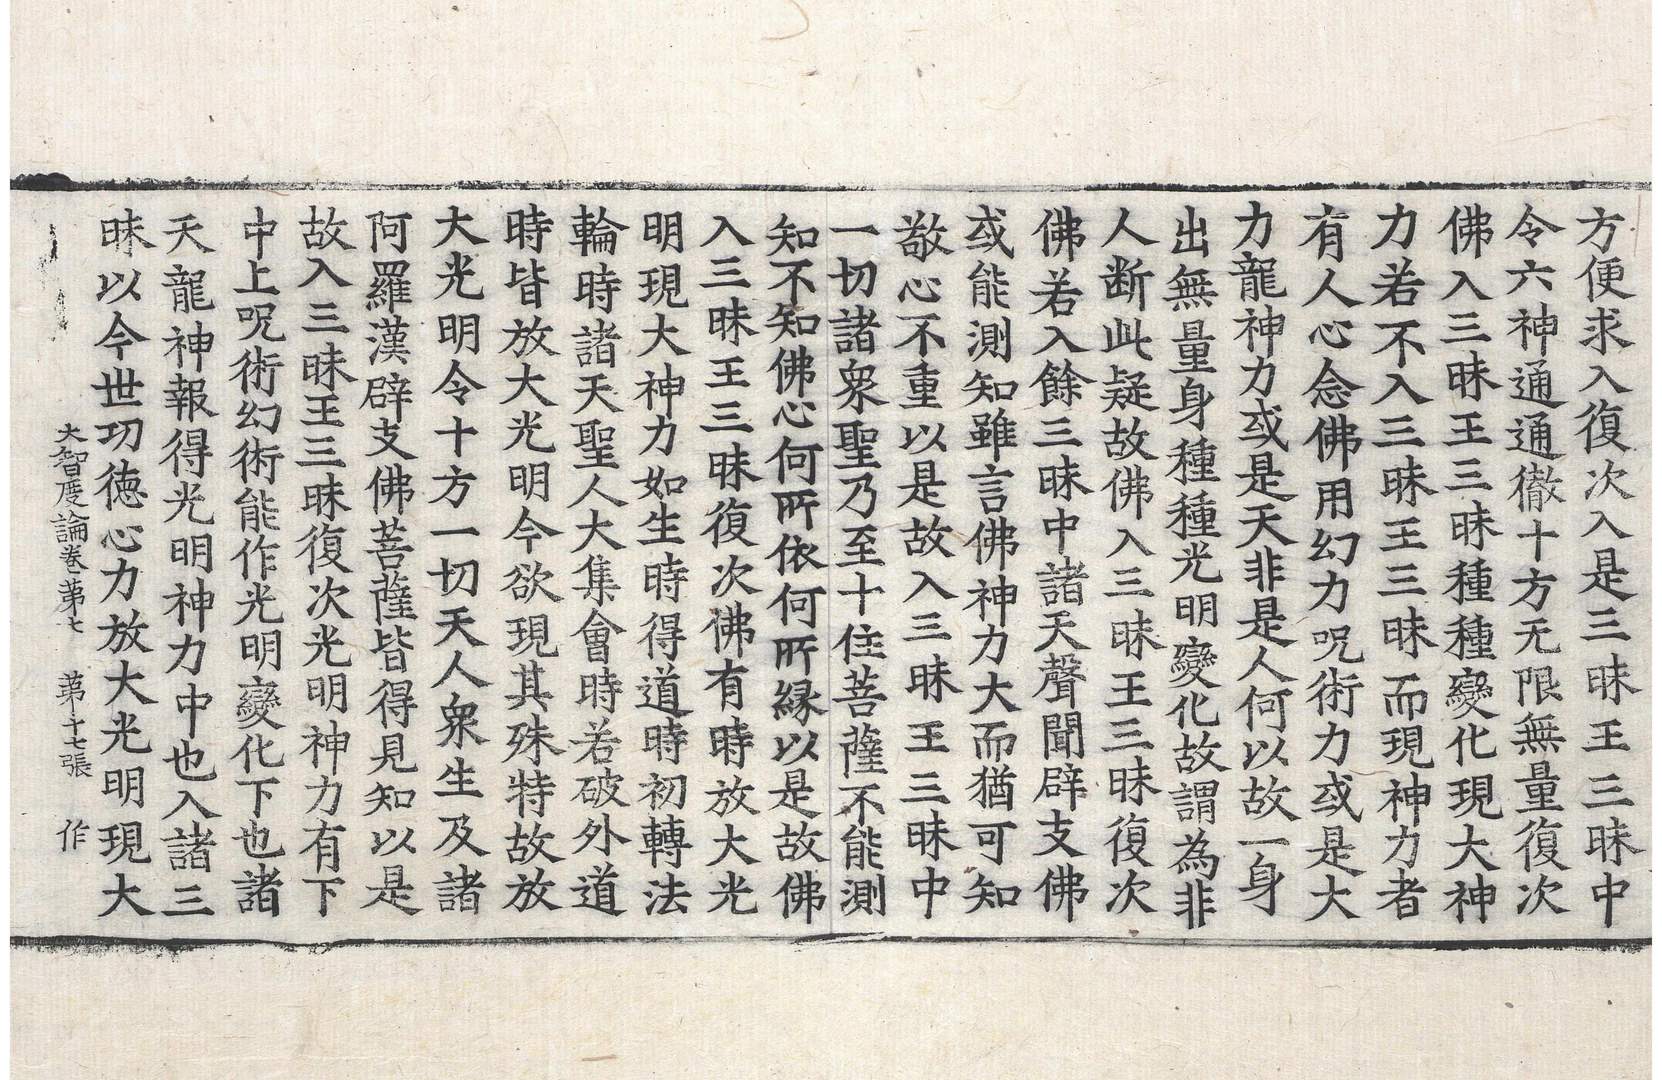 方便求入復次入是三昧王三昧中
令六神通通徹十方无限無量復次
佛入三昧王三昧種種變化現大神
力若不入三昧王三昧而現神力者
有人心念佛用幻力呪術力或是大
力龍神力或是天非是人何以故一身
出無量身種種光明變化故謂為非
人斷此疑故佛入三昧王三昧復次
佛若入餘三昧中諸天聲聞辟支佛
或能測知雖言佛神力大而猶可知
敬心不重以是故入三昧王三昧中
一切諸衆聖乃至十住菩薩不能測
知不知佛心何所依何所緣以是故佛
入三昧王三昧復次佛有時放大光
明現大神力如生時得道時初轉法
輪時諸天聖人大集會時若破外道
時皆放大光明今欲現其殊特故放
大光明令十方一切天人衆生及諸
阿羅漢辟支佛菩薩皆得見知以是
故入三昧王三昧復次光明神力有下
中上呪術幻術能作光明變化下也諸
天龍神報得光明神力中也入諸三
昧以今世功德心力放大光明現大
大智度論卷第七 第十七張 作